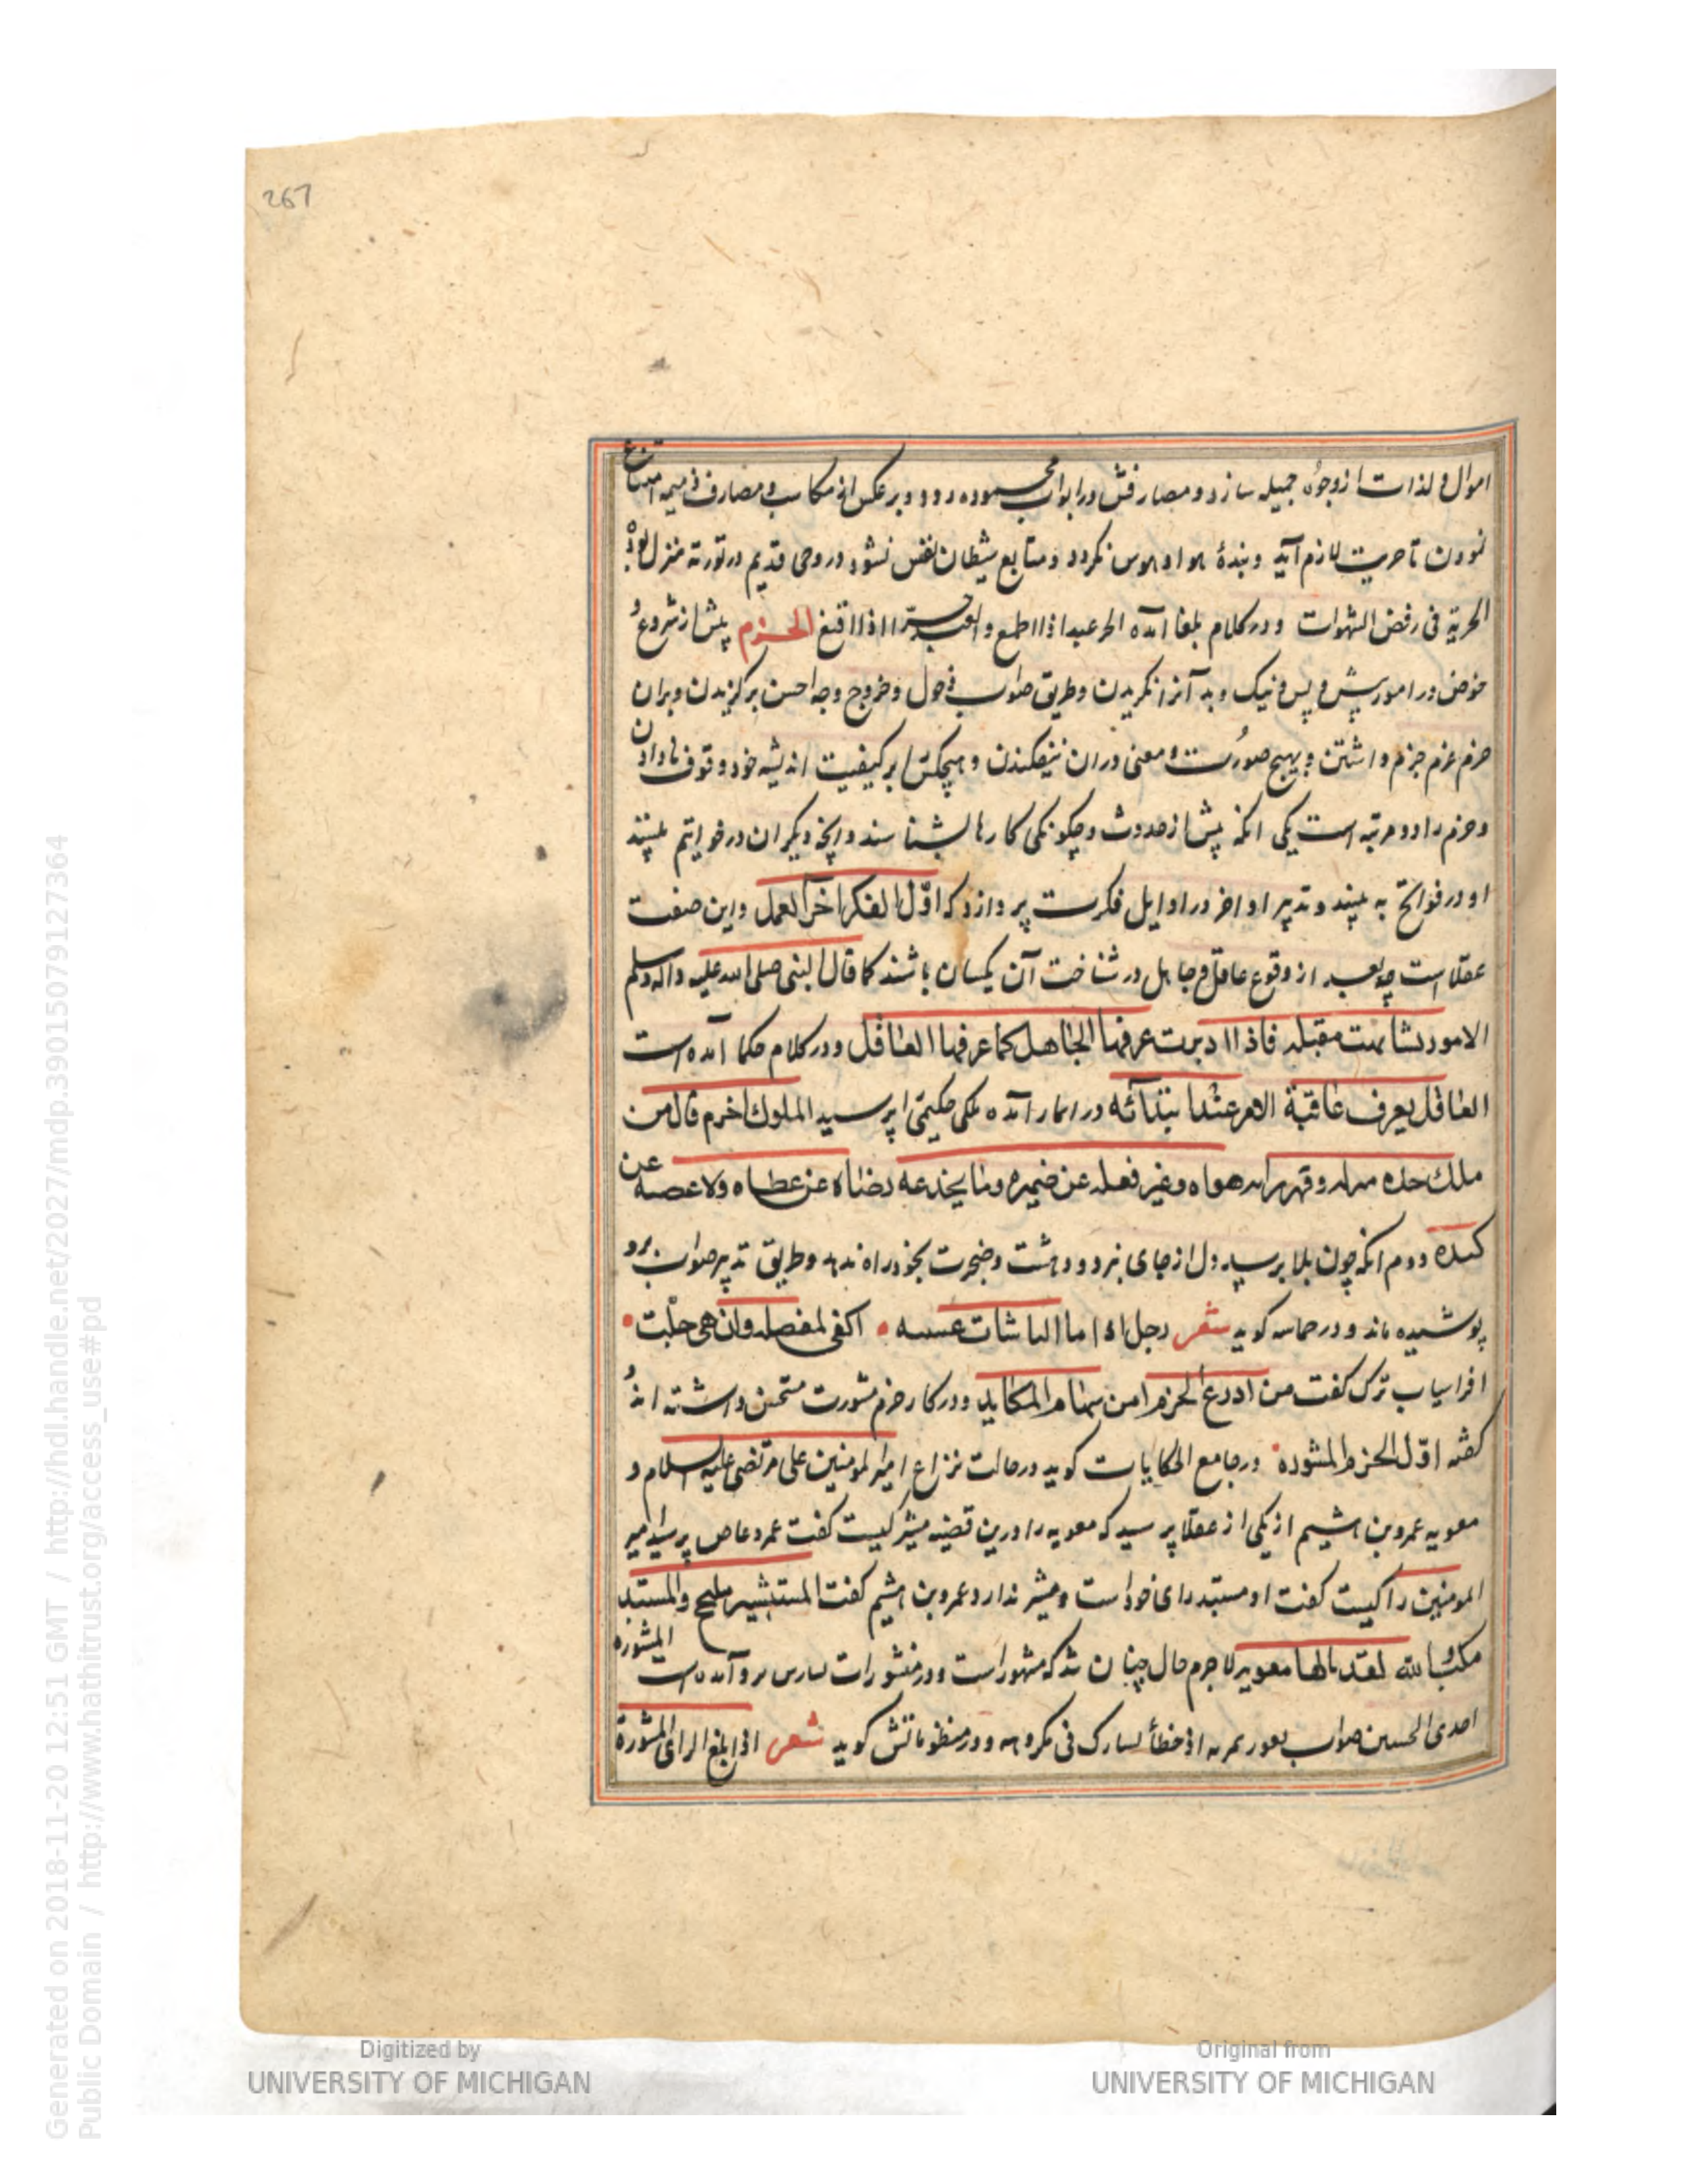 267
اموال و لذات از وجوه جمیله سازد و مصارفش در ابواب محموده رود و بر عکس از مکاسب و مصارف ذمیمه امتناع
نمودن تا حریت لازم آید و بندهٔ هوا و هوس نکردد و متابع شیطان نفس نشود در وحی قدیم در توریة منزل بوذ
الحریة فی رفض الشهوات و در کلام بلغا آمده الحر عبد اذا اطمع و العبد حر اذا اقنع الحزم پیش از شروع و
خوض در امور پیش و پس و نیک و بد آنرا نکریدن و طریق صواب دخول و خروج وجه احسن برکزیدن و بران
حزم عزم جزم داشتن و بهیچ صورت و معنی دران نیفکندن و هیچکس را بر کیفیت اندیشه خود وقوف نادادن
و حزم را دو مرتبه است یکی انکه پیش از حدوث و چکونکی کارها بشناسند و آنچه دیکران در خواتیم بینند
او در فواتح به بیند و تدبیر اواخر در اوایل فکرت پردازد که اوّل الفکر آخر العمل و این صفت
عقلا است چه بعد از وقوع عاقل و جاهل در شناخت آن یکسان باشند کما قال النبی صلی الله علیه واله وسلم
الامور تشابهت مقبله فاذا ادبرت عرفها الجاهل کما عرفها العاقل و در کلام حکما آمده است
العاقل یعرف عاقبة الامر عند ابتدائه در اخبار آمده ملکی حکیمی را پرسید الملوک احزم قال من
ملک جده هزله و قهر رایه هواه و عبر فعله عن ضمیره و ما یخدعه رضاه عن عطاه ولا غضبه عن
کیده دوم انکه چون بلا برسید دل از جای نبرد و دهشت و ضجرت بخود راه ندهد و طریق تدبیر صواب برو
پوشیده نماند و در حماسه کوید شعر رجل اذا ما النائبات غشینه • اکفی لمعضلة وان هی جلّت •
افراسیاب ترک کفت من ادرع الحزم امن سهام المکاید و در کار حزم مشورت مستحسن داشته اند و
کفته اوّل الحزم المشورة • در جامع الحکایات کوید در حالت نزاع امیر المومنین علی مرتضی علیه السلام و
معویه عمرو بن هشیم از یکی از عقلا پرسید که معویه را درین قضیه مشیر کیست کفت عمرو عاص پرسید امیر
المومنین را کیست کفت او مستبد رای خود است و مشیر ندارد عمرو بن هشیم کفت المستشیر ملیح والمستبد
لقد نالها معویه لاجرم حال چنان شد که مشهور است و در منشورات آمده است المشورة
احدی الحسنین صواب و در منظوماتش کوید شعر اذا بلغ الرای المشورة
Generated on 2018-11-20 12:51 GMT / http://hdl.handle.net/2027/mdp.39015079127364
Public Domain / http://www.hathitrust.org/access_use#pd
Digitized by
UNIVERSITY OF MICHIGAN
Original from
UNIVERSITY OF MICHIGAN